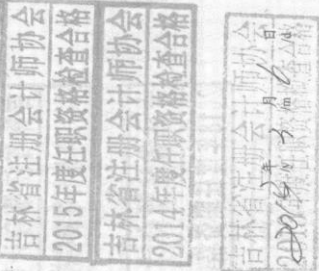 吉林省注册会计师协会
2015年度任职资格检查合格
吉林省注册会计师协会
2014年度任职资格检查合格
吉林省注册会计师协会
年 月 日
/y /m /d